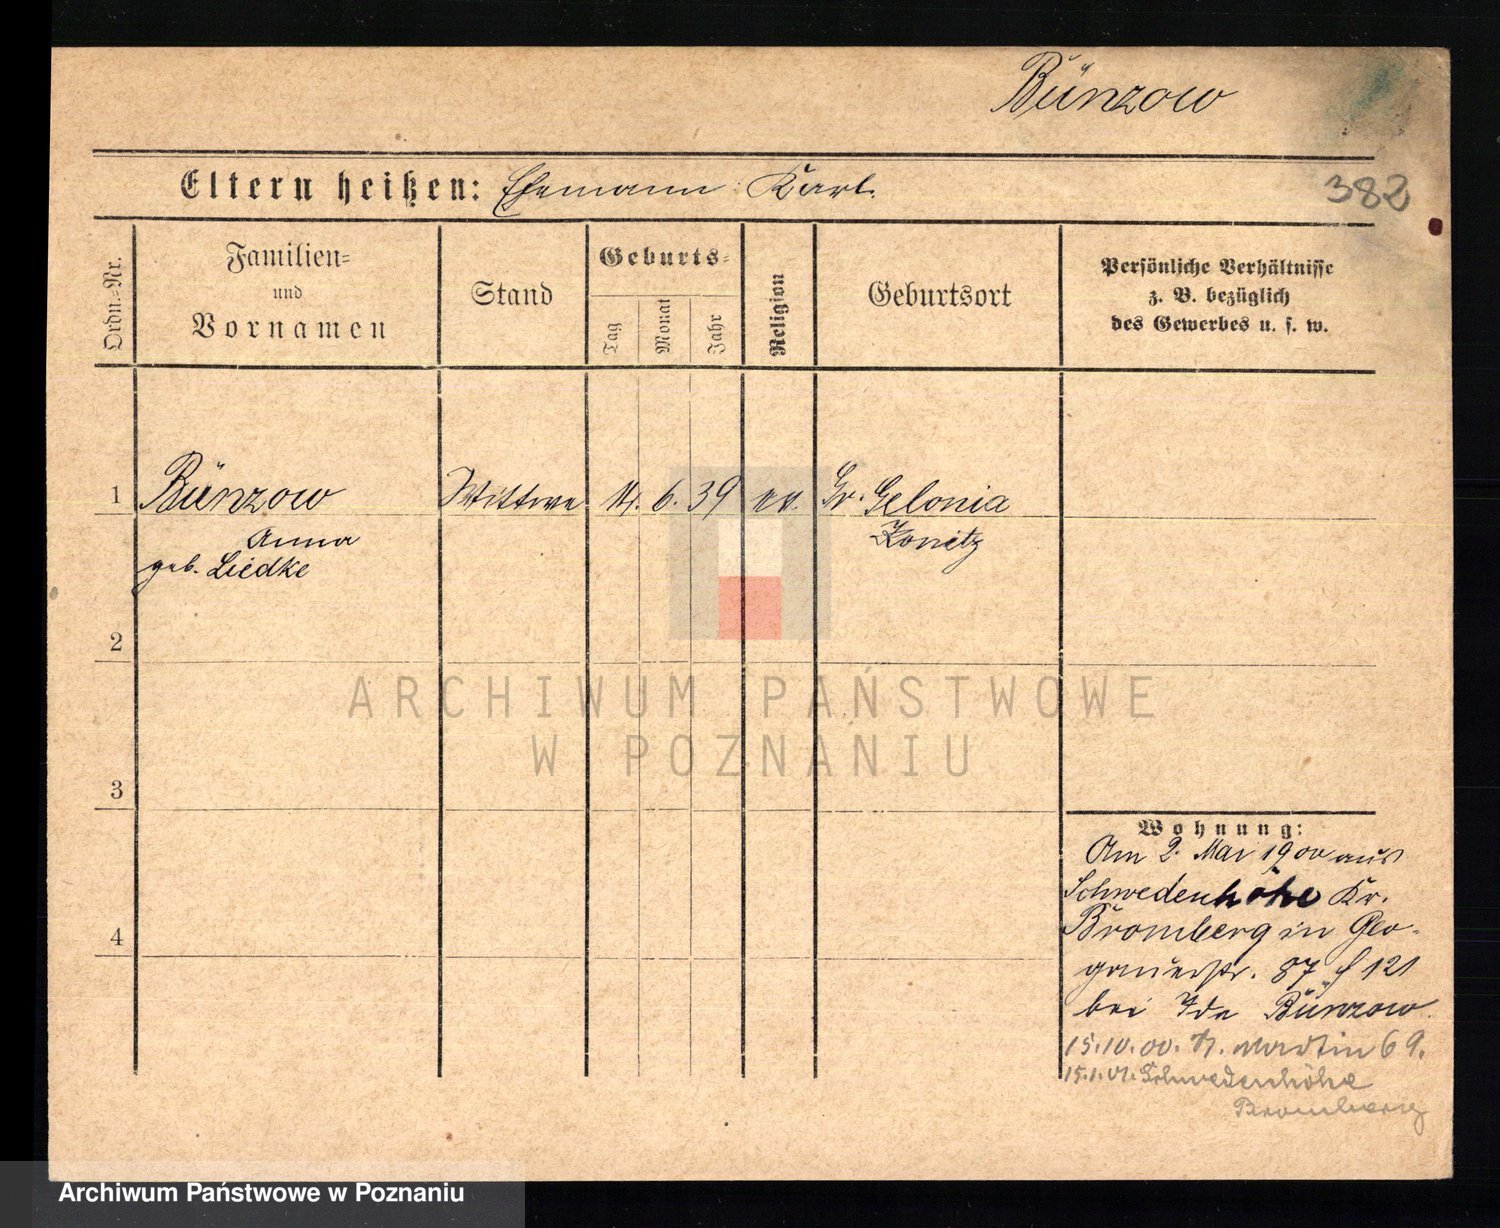 Bünzow
Eltern heißen: Ehemann: Karl.
382
Ordn.-Nr.
Familien-
und
Vornamen
Stand
Geburts-
Tag
Monat
Jahr
Religion
Geburtsort
Persönliche Verhältnisse
z. B. bezüglich
des Gewerbes u. s. w.
1
Bünzow
Wittwe
6. 39
ev.
Gr. Gelonia
Anna
Konitz
geb. Liedke
2
ARCHIWUM PAŃSTWOWE
W POZNANIU
3
Wohnung:
Am 2. Mai 1900 aus
Schwedenhöhe Kr.
Bromberg in Glo-
gauerstr. 87 f 121
bei Ida Bünzow.
15.10.00. St. Martin 69.
15.1.01. Schwedenhöhe
Bromberg
4
Archiwum Państwowe w Poznaniu